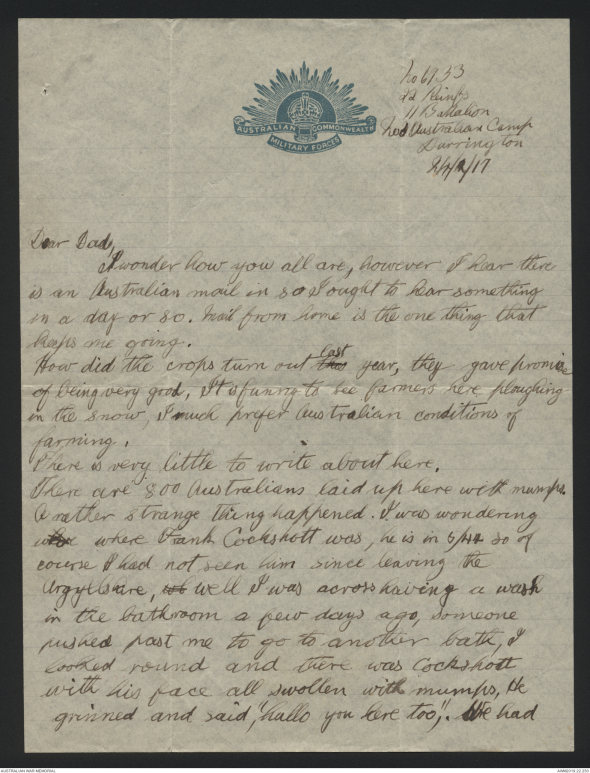 AUSTRALIAN COMMONWEALTH
MILITARY FORCES
No 6953
12 Reinfs
11 Battalion
No 1 Australian Camp
Durrington
/17
Dear Dad,
I wonder how you all are, however I hear there
is an Australian mail in so I ought to hear something
in a day or so. Mail from home is the one thing that
keeps me going.
How did the crops turn out this last year, they gave promise
of being very good, It is funny to see farmers here ploughing
in the snow, I much prefer Australian conditions of
farming.
There is very little to write about here.
There are 800 Australians laid up here with mumps.
A rather strange thing happened. I was wondering
where Frank Cockshott was, he is in 5/44 so of
course I had not seen him since leaving the
Argyllshire, well I was across having a wash
in the bathroom a few days ago, someone
pushed past me to go to another bath, I
looked round and there was Cockshott
with his face all swollen with mumps, He
grinned and said, "hallo you here too,". We had
AUSTRALIAN WAR MEMORIAL